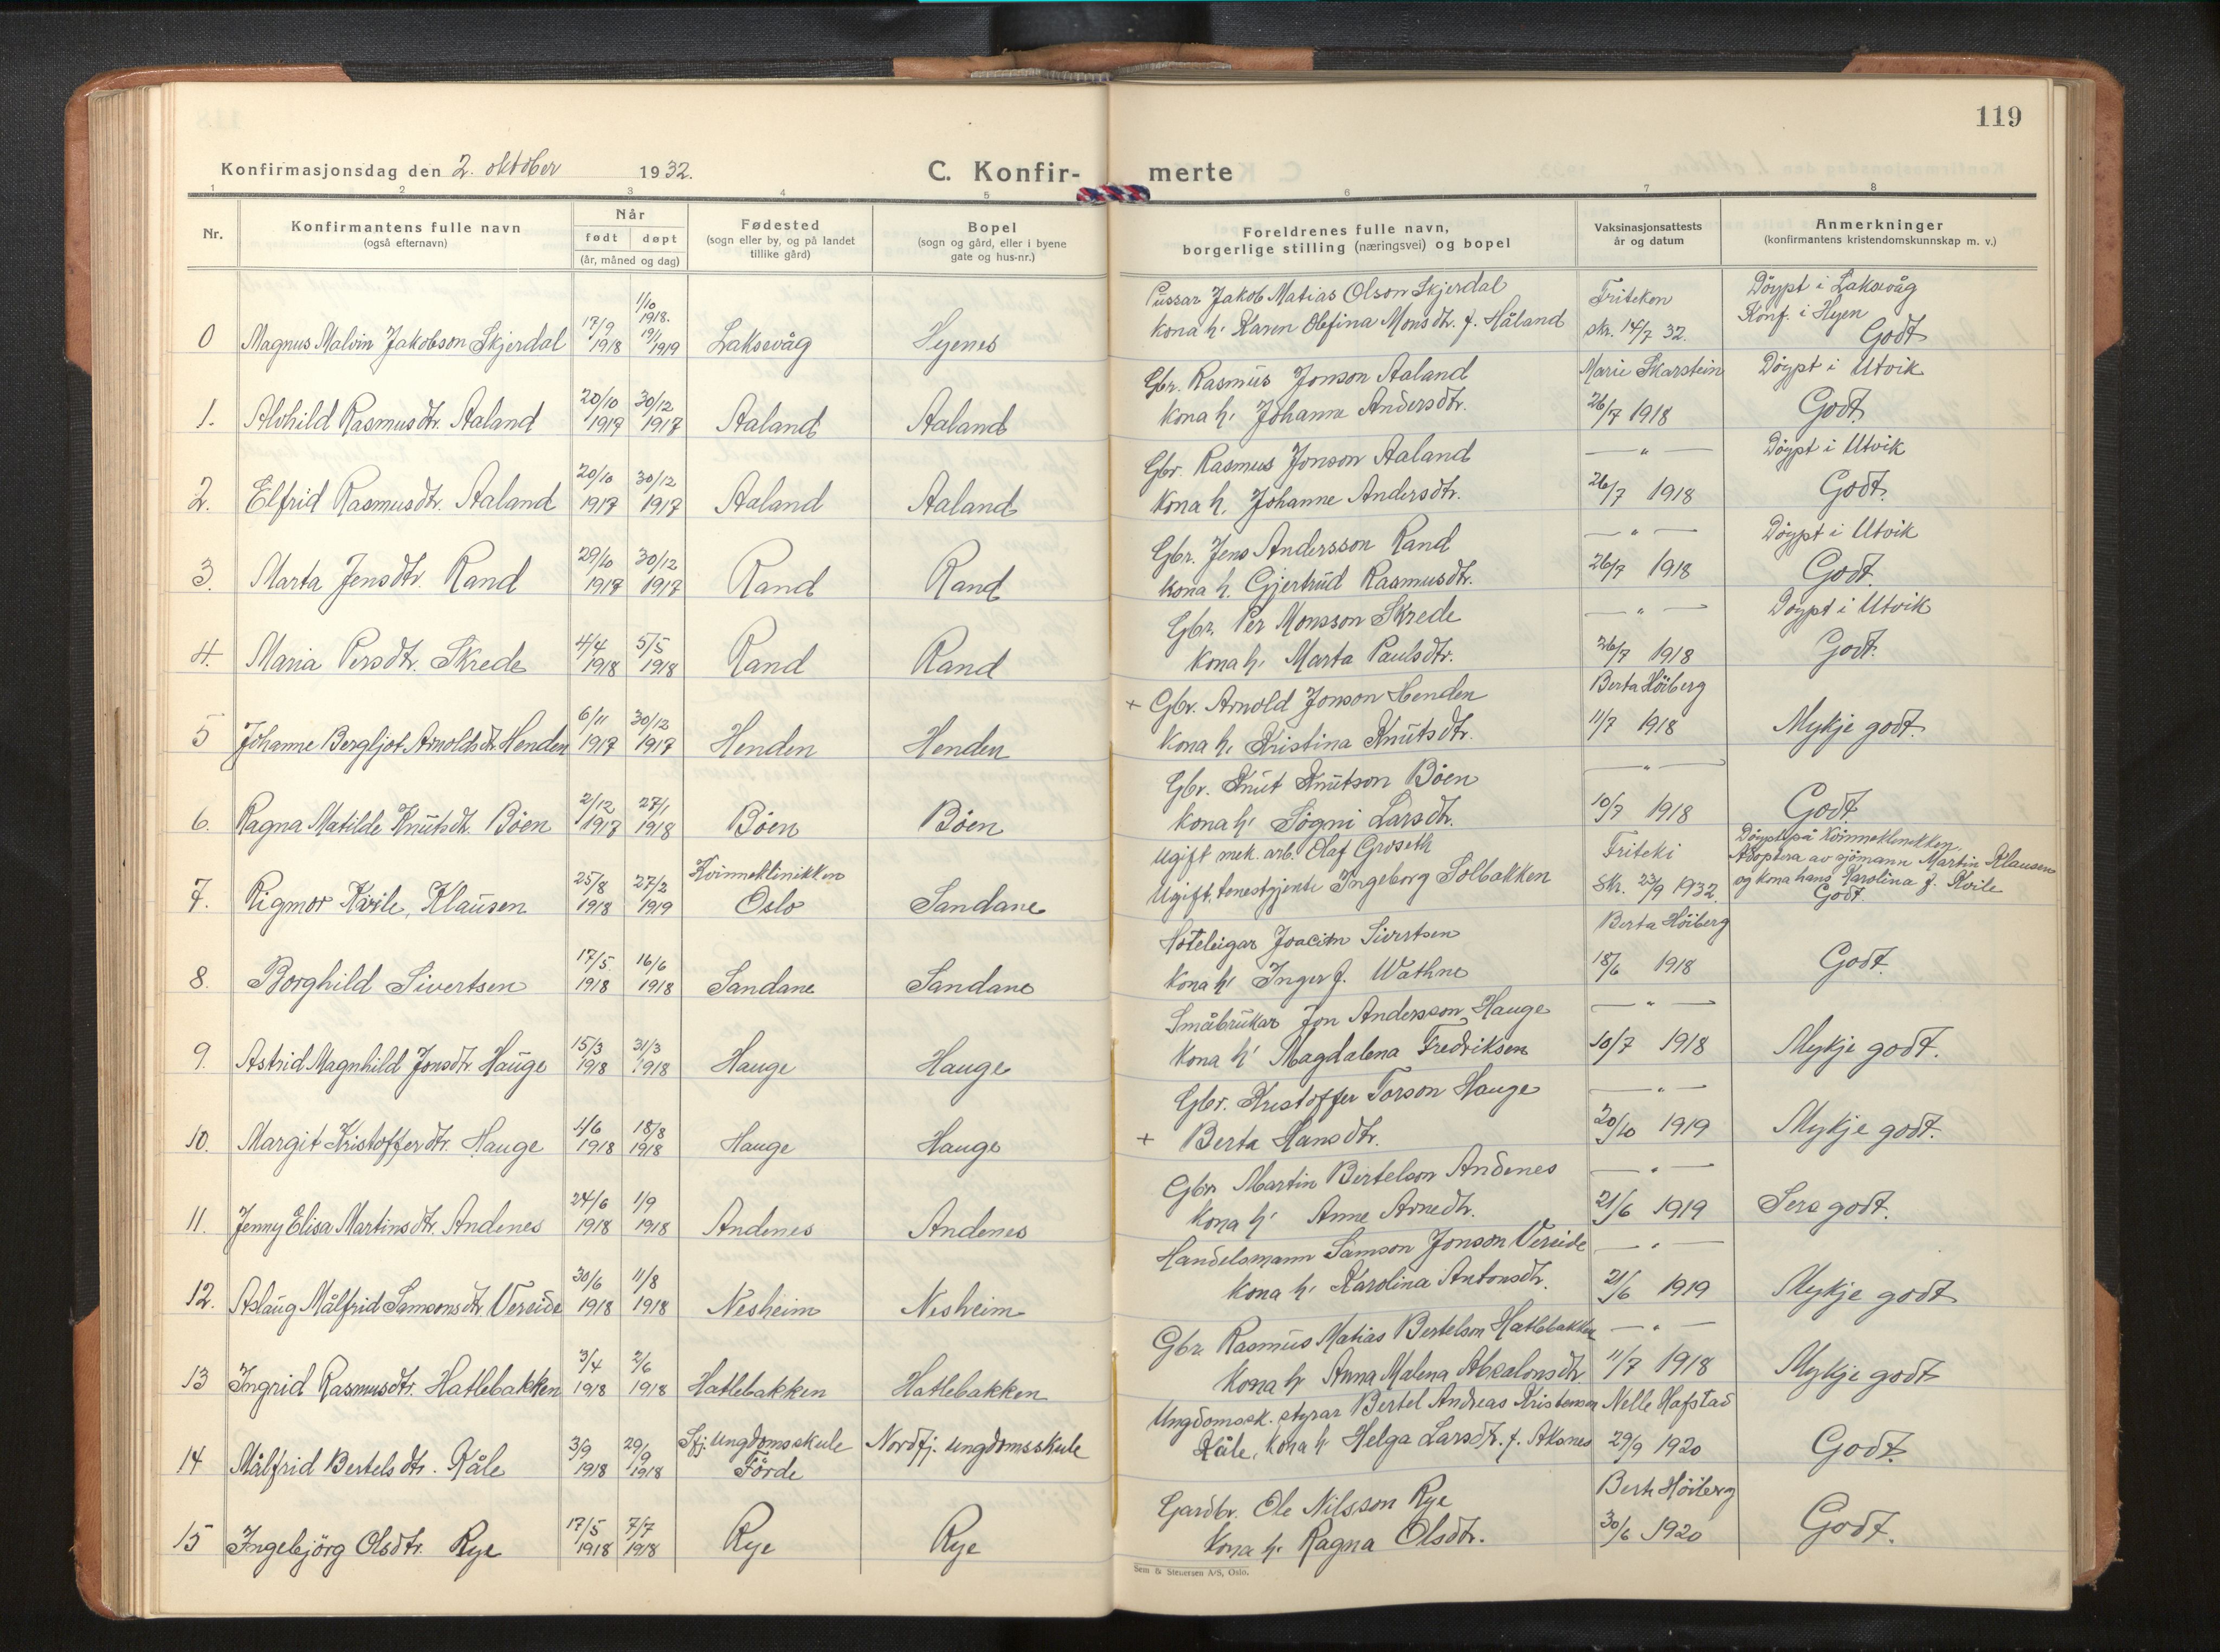 119
Konfirmasjonsdag den 2. oktober 1932. C. Konfir- merte
1 2 3 4 5 6 7 8
Nr.
Konfirmantens fulle navn
(også efternavn)
Når
født døpt
(år, måned og dag)
Fødested
(sogn eller by, og på landet
tillike gård)
Bopel
(sogn og gård, eller i byene
gate og hus-nr.)
Foreldrenes fulle navn,
borgerlige stilling (næringsvei) og bopel
Vaksinasjonsattests
år og datum
Anmerkninger
(konfirmantens kristendomskunnskap m. v.)
Jakob Matias Olson Skjerdal Döypt i Laksevåg
1/10 1918.
0 Magnus Malvin Jakobson Skjerdal 17/9 1918 19/1 1919 Laksevåg Hyenes kona h. Karen Olefina Monsdtr. f. Håland skr. 14/7 32. Konf. i Hyen Godt
Gbr. Rasmus Jonson Aaland Marie Skarstein Döypt i Utvik
1. Alvhild Rasmusdtr. Aaland 20/10 1917 30/12 1917 Aaland Aaland kona h. Johanne Andersdtr. 26/7 1918 Godt
Gbr. Rasmus Jonson Aaland — " — Döypt i Utvik
2. Elfrid Rasmusdtr. Aaland 20/10 1917 30/12 1917 Aaland Aaland kona h. Johanne Andersdtr. 26/7 1918 Godt.
Gbr. Jens Andersson Rand — " — Döypt i Utvik
3. Marta Jensdtr. Rand 29/10 1917 30/12 1917 Rand Rand kona h. Gjertrud Rasmusdtr. 26/7 1918 Godt.
Gbr. Per Monsson Skrede — " — Döypt i Utvik
4. Maria Persdtr. Skrede 4/4 1918 5/5 1918 Rand Rand kona h. Marta Paulsdtr. 26/7 1918 Godt.
+ Gbr. Arnold Jonson Henden Berta Höiberg
5 Johanne Bergljot Arnoldsdtr. Henden 6/11 1917 30/12 1917 Henden Henden kona h. Kristina Knutsdtr. 11/7 1918 Mykje godt.
Gbr. Knut Knutson Böen — " —
6. Ragna Matilde Knutsdtr. Böen 2/12 1917 27/1 1918 Böen Böen kona h. Sögni Larsdtr. 10/7 1918 Godt.
Ugift mek. arb. Olaf Groseth Döypt på Kvinneklinikken.
Kvinneklinikken Adoptera av sjömann Martin Klausen
7. Rigmor Kvile, Klausen 25/8 1918 27/2 1919 Oslo Sandane Ugift tenestgjente Ingeborg Solbakken skr. 23/9 1932. og kona hans Karolina f. Kvile
Godt.
Hoteleigar Joacim Sivertsen Berta Höiberg
8. Borghild Sivertsen 17/5 1918 16/6 1918 Sandane Sandane kona h. Inger f. Wathne 18/6 1918 Godt.
Småbrukar Jon Andersson Hauge — " —
9. Astrid Magnhild Jonsdtr. Hauge 15/3 1918 31/3 1918 Hauge Hauge kona h. Magdalena Fredriksen 10/7 1918 Mykje godt.
Gbr. Kristoffer Torson Hauge — " —
10. Margit Kristofferdtr. Hauge 1/6 1918 18/8 1918 Hauge Hauge + Berta Hansdtr. 20/10 1919 Mykje godt.
Gbr. Martin Bertelson Andenes — " —
11. Jenny Elisa Martinsdtr. Andenes 24/6 1918 1/9 1918 Andenes Andenes kona h. Anne Arnedtr. 21/6 1919 Sers godt.
Handelsmann Samson Jonson Vereide — " —
12. Aslaug Målfrid Samsonsdtr. Vereide 30/6 1918 11/8 1918 Nesheim Nesheim kona h. Karolina Antonsdtr. 21/6 1919 Mykje godt
Gbr. Rasmus Matias Bertelson Hatlebakken — " —
13 Ingrid Rasmusdtr. Hatlebakken 3/4 1918 2/6 1918 Hatlebakken Hatlebakken kona h Anna Malena Absalonsdtr. 11/7 1918 Mykje godt
Ungdomssk. styrar Bertel Andreas Kristensen Nelle Hafstad
Sfj. ungdomsskule Nordfj. ungdomsskule
14 Målfrid Bertelsdtr. Råle 3/9 1918 29/9 1918 Förde Råle, kona h Helga Larsdtr. f. Aksnes 29/9 1920 Godt.
Gardbr. Ole Nilsson Rye Berta Höiberg
15 Ingebjörg Olsdtr. Rye 17/5 1918 7/7 1918 Rye Rye kona h. Ragna Olsdtr. 30/6 1920 Godt.
Sem & Stenersen A/S, Oslo.